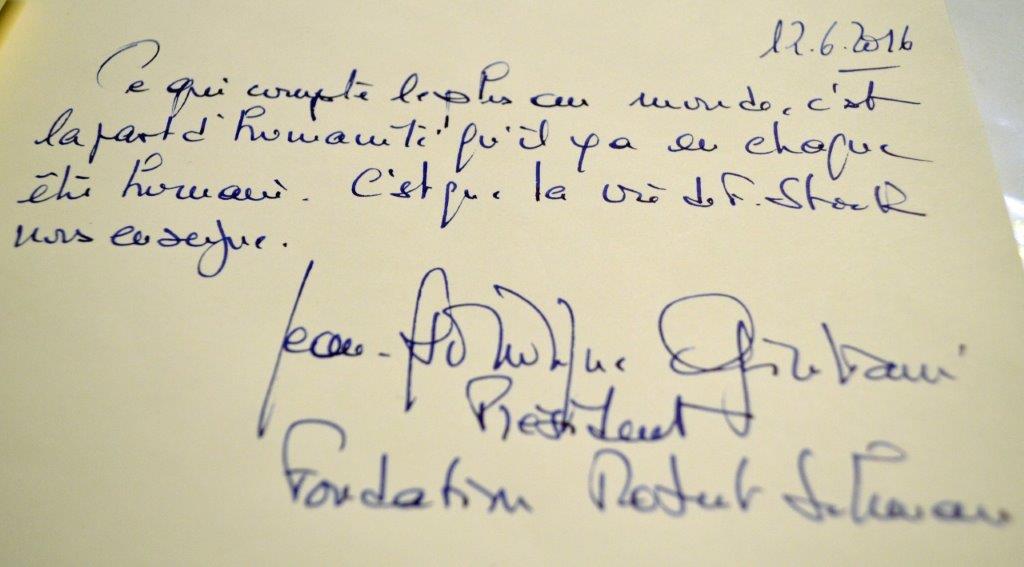 12.6.2016
Ce qui compte le plus au monde, c'est
la part d'humanité qu'il y a en chaque
être humain. C'est que la vie de F. Stock
nous enseigne.
Jean-Dominique Giuliani
Président
Fondation Robert Schuman